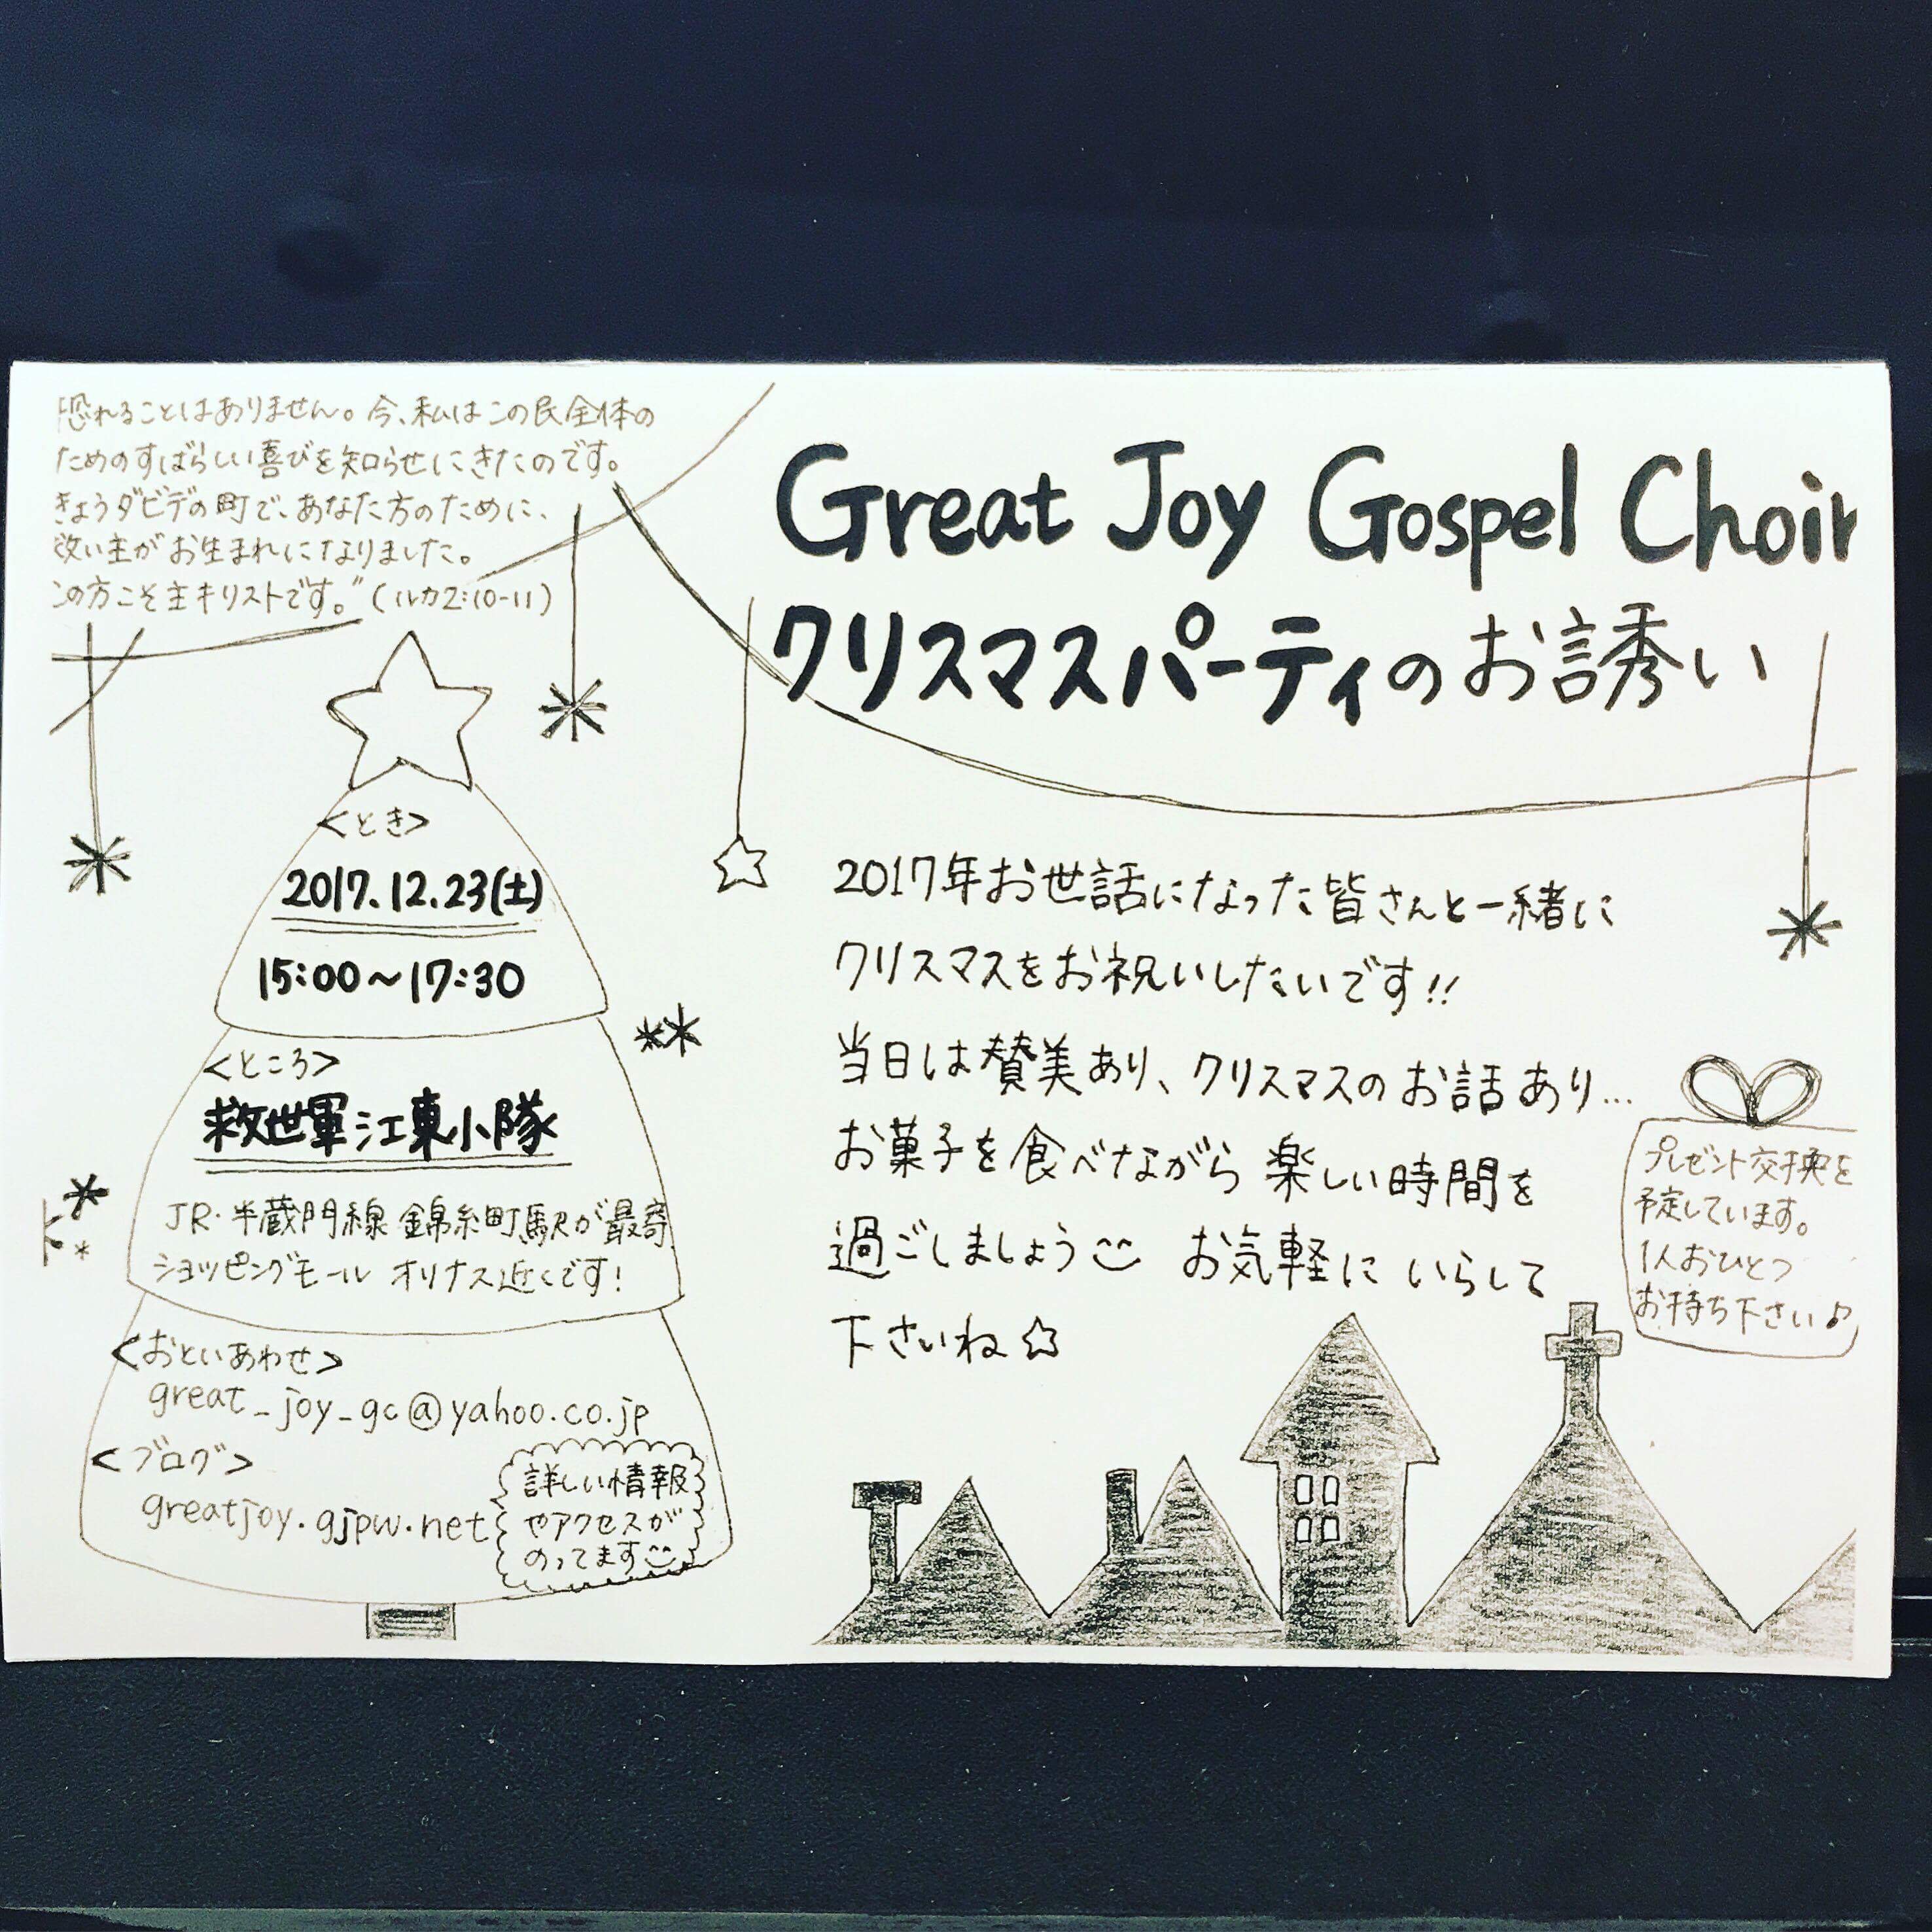 恐れることはありません。今、私はこの民全体の
ためのすばらしい喜びを知らせにきたのです。
きょうダビデの町で、あなた方のために、
救い主がお生まれになりました。
この方こそ主キリストです。" (ルカ2:10-11)
Great Joy Gospel Choir
クリスマスパーティのお誘い
<とき>
2017.12.23(土)
15:00~17:30
<ところ>
救世軍江東小隊
JR・半蔵門線 錦糸町駅が最寄
ショッピングモール オリナス近くです!
<おといあわせ>
great_joy_gc@yahoo.co.jp
<ブログ>
greatjoy.gjpw.net
詳しい情報
やアクセスが
のってます
2017年お世話になった皆さんと一緒に
クリスマスをお祝いしたいです!!
当日は賛美あり、クリスマスのお話あり…
お菓子を食べながら楽しい時間を
過ごしましょう お気軽にいらして
下さいね☆
プレゼント交換を
予定しています。
1人おひとつ
お持ち下さい♪